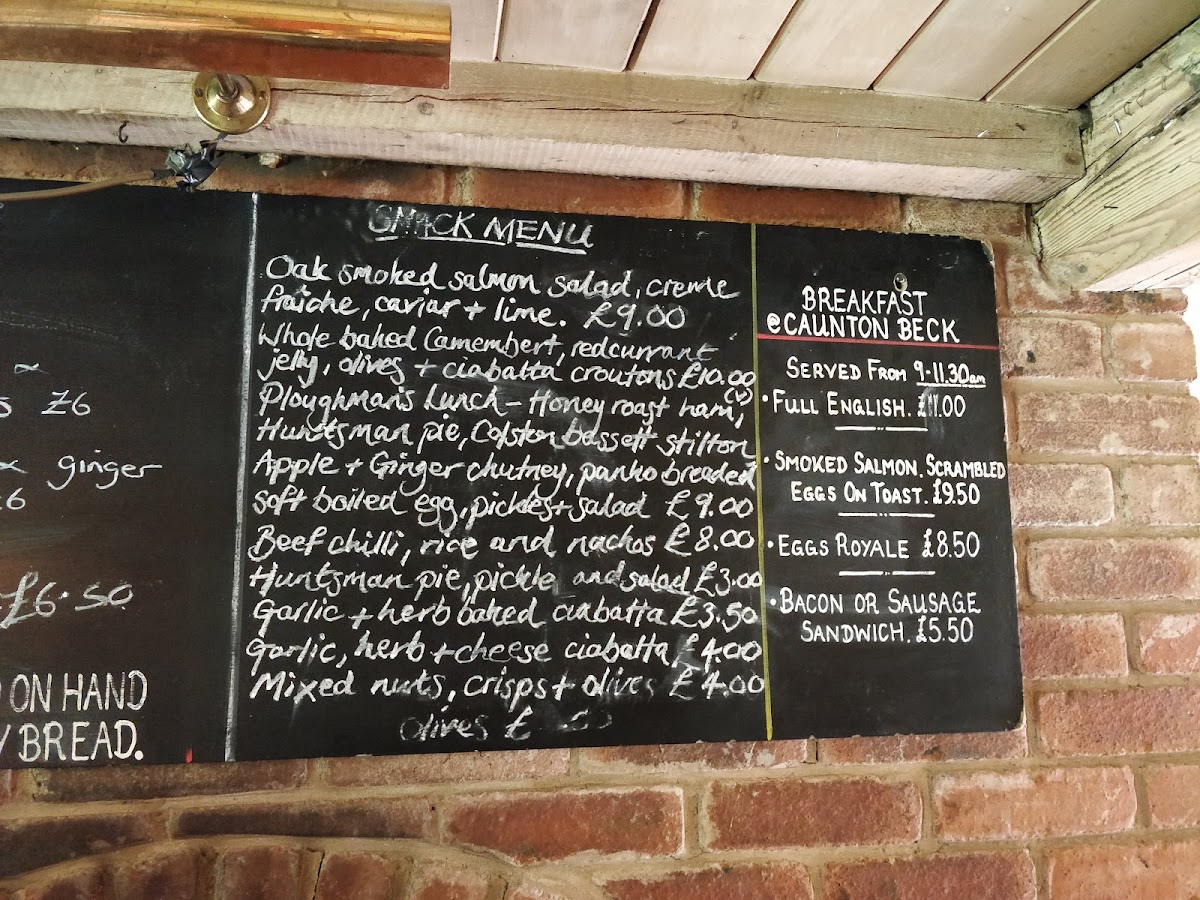 s £6
ginger
£6.50
ON HAND
BREAD.
SNACK MENU
Oak smoked salmon salad, creme
fraîche, caviar + lime. £9.00
Whole baked Camembert, redcurrant
jelly, olives + ciabatta croutons £10.00
(v)
Ploughman's Lunch - Honey roast ham,
Huntsman pie, Colston bassett stilton
Apple + Ginger chutney, panko breaded
soft boiled egg, pickles + salad £9.00
Beef chilli, rice and nachos £8.00
Huntsman pie, pickle and salad £3.00
Garlic + herb baked ciabatta £3.50
Garlic, herb + cheese ciabatta, £4.00
Mixed nuts, crisps + olives £4.00
olives £
BREAKFAST
@ CAUNTON BECK
SERVED FROM 9-11.30am
• FULL ENGLISH. £11.00
• SMOKED SALMON. SCRAMBLED
EGGS ON TOAST. £9.50
• EGGS ROYALE £8.50
• BACON OR SAUSAGE
SANDWICH. £5.50